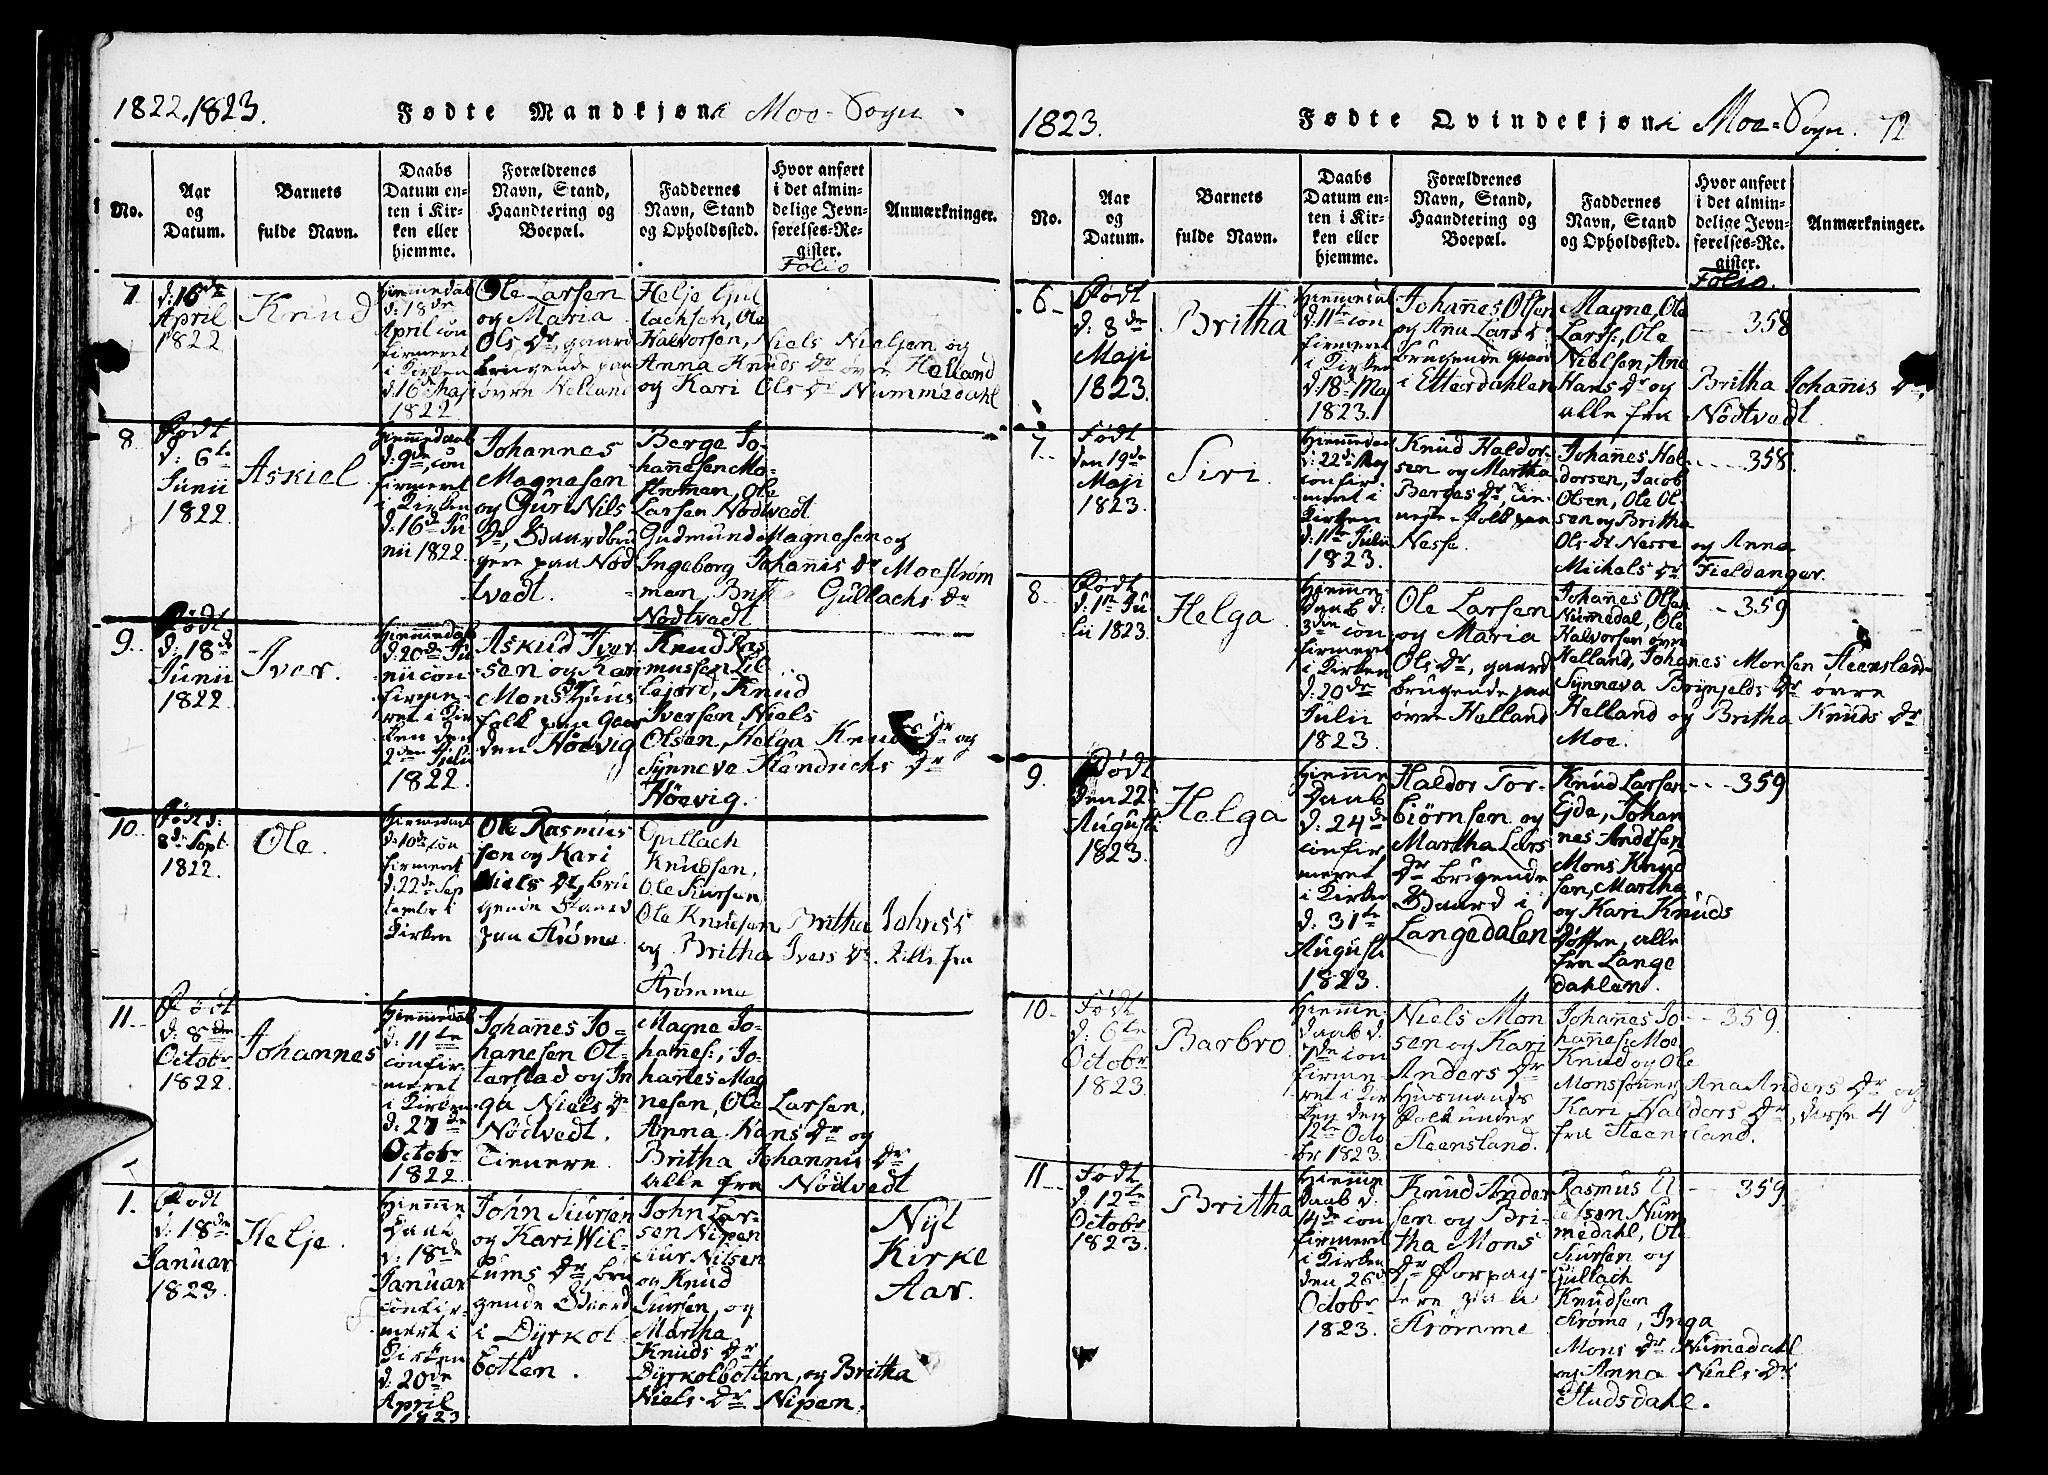 1822, 1823. Fødte Mandkjøn i Moe-Sogn.
No.
Aar
og
Datum.
Barnets
fulde Navn.
Daabs
Datum en-
ten i Kir-
ken eller
hjemme.
Forældrenes
Navn, Stand,
Haandtering og
Boepæl.
Faddernes
Navn, Stand
og Opholdssted.
Hvor anført
i det almin-
delige Jevn-
førelses-Re-
gister.
Folio
Anmærkninger.
7
d: 16de
April
1822
Knud
Hiemmedab
d: 18de
April con
firmeret
i Kirken
d: 16de Maji
1822
Ole Larsen
og Maria
Ols Dr, gaard
brugende paa
øvre Helland
Helje Gul
lachsen, Ole
Halvorsen, Niels Nielsen og
Anna Knuds Dr øvre Helland
og Kari Ols Dr Nummedahl
8
Født
d: 6te
Junii
1822.
Askiel
Hiemmedaab
d: 9de, con
firmeret
i Kirken
d: 16de Ju
nii 1822.
Johannes
Magnesen
og Guri Nils
Dr, Gaardbru
gere paa Nød
tvedt.
Berge Jo-
hannesen Mo-
strømen, Ole
Larsen Nødtvedt
Gudmund Magnesen og
Ingeborg Johannis Dr Moestrøm
men, Gullachs Dr
Nødtvedt
9.
Født
d: 18de
Junii
1822.
Iver.
Hiemmedab
d: 20de Ju
nii con-
firme-
ret i Kir
ken den
2den Julii
1822.
Askild Iver
sen og Kari
Mons Dr Huus
folk paa Gaar
den Høevig
Knud Ras
mussen Lil
lejord, Knud
Iversen, Niels
Olsen, Helga Knuds Dr og
Synneva Hendrichs Dr
Høevig.
10.
Født d:
8de Sept
1822.
Ole.
Hiemmedaab
d: 10de, con
firmeret
d: 22de Sep
tembr i
Kirken
Ole Rasmus
sen og Kari
Niels Dr, bru
gende Gaard
paa Strøme.
Gullach
Knudsen,
Ole Siursen,
Ole Knudsen, Britha Johns
og Britha Ivers Dr. alle fra
Strømme
11.
Født
d: 8de
Octobr
1822.
Johannes
Hiemmedab
d: 11te
confir-
meret
i Kirken
d: 27de
Octobr
1822.
Johannes Jo-
hanesen Ot-
terstad og In
ga Niels Dr
Nødvedt.
Tienere.
Magne Jo-
hannes:, Jo-
hannes Mag
nesen, Ole Larsen,
Anna Hans Dr og
Britha Johannis Dr
alle fra Nødvedt
1.
Født
d: 18de
Januar
1823.
Helje.
Hiemme
Daab
d: 18de
Januar
confir-
mert i
Kirken
d: 20de
April
1823
John Siursen
og Kari Wil-
lums Dr, bru
gende Gaard
i Dyrkol
botten.
John Lar-
sen Nipen
Siur Nilsen
og Knud
Siursen, og
Martha
Knuds Dr
Dyrkolbotten, og Britha
Niels Dr Nipen.
Nyt
Kirke
Aar.
1823. Fødte Qvindekjøn i Moe-Sogn. 72
No.
Aar
og
Datum.
Barnets
fulde Navn.
Daabs
Datum en-
ten i Kir-
ken eller
hjemme.
Forældrenes
Navn, Stand,
Haandtering og
Boepæl.
Faddernes
Navn, Stand
og Opholdssted.
Hvor anført
i det almin-
delige Jevn-
førelses-Re-
gister.
Folio.
Anmærkninger.
6
Født
d: 8de
Maji
1823.
Britha
d: 11te con
firmeret
i Kirken
d: 18de Maj
1823.
Johannes Olsen
og Ana Lars Dr
brugende gaard
i Etterdahlen
Magne, Ole
Larss:, Ole
Nielsen, Ane
Hans Dr og Britha Johannis Dr,
alle fra Nødtvedt.
358
7
Født
den 19de
Maji
1823.
Siri.
Hiemmedab
d: 22de Maj
confir-
meret i
Kirken
d: 11te Julii
1823.
Knud Haldor-
sen og Martha
Berges Dr, tie-
neste-folk paa
Nesse.
Johannes Hal-
dorsen, Jacob
Olsen, Ole Ol-
sen og Britha
Ols Dr Nesse og Anna
Michels Dr Fieldanger.
358.
8
Født
d: 1te Ju
lii 1823.
Helga
Hiemme-
Daab d:
3die con
firmeret
i Kirken
d: 20de
Julii
1823.
Ole Larsen
og Maria
Ols Dr, gaard
brugende paa
øvre Helland
Johannes Olsen
Numedal, Ole
Halvorsen øvre
Helland, Johannes Monsen Steensland
Synneva Brynjelds Dr øvre
Helland og Britha Knuds Dr
Moe.
359
9.
Født
den 22de
Augusti
1823.
Helga
Hiemme
Daab
d: 24de
confir
meret
i Kirken
d: 31te
Augusti
1823.
Haldor Tor-
biørnsen og
Martha Lars
Dr brugende
Gaard i
Langedalen
Knud Larsen
Eide, Johan
nes Andersen
Mons Knud
sen, Martha
og Kari Knuds
Døttre, alle
fra Lange
dahlen.
359
10
Født
d: 6te
Octobr
1823.
Barbro.
Hiemme-
daab d.
7de con
firme-
ret i Kir
ken den
12te Octo
br 1823.
Niels Mon
sen og Kari
Anders Dr
Husmands
folk under
Steensland.
Johannes Jo-
hanes: Moe
Knud og Ole
Monssønner, Ana Anders Dr og
Kari Halders Dr, disse 4
fra Steensland.
359.
11
Født
d: 12te
Octobr
1823.
Britha
Hiemme
daab d.
14de con
firmeret
i Kirken
den 26de
Octobr
1823.
Knud Ander
sen og Bri-
tha Mons
Dr Forpag-
tere paa
Strømme
Rasmus El
lefsen Num
medahl, Ole
Siursen og
Gullach
Knudsen
Strøme, Inga
Mons Dr Numedahl
og Anna Niels Dr
Studsdahl.
359.